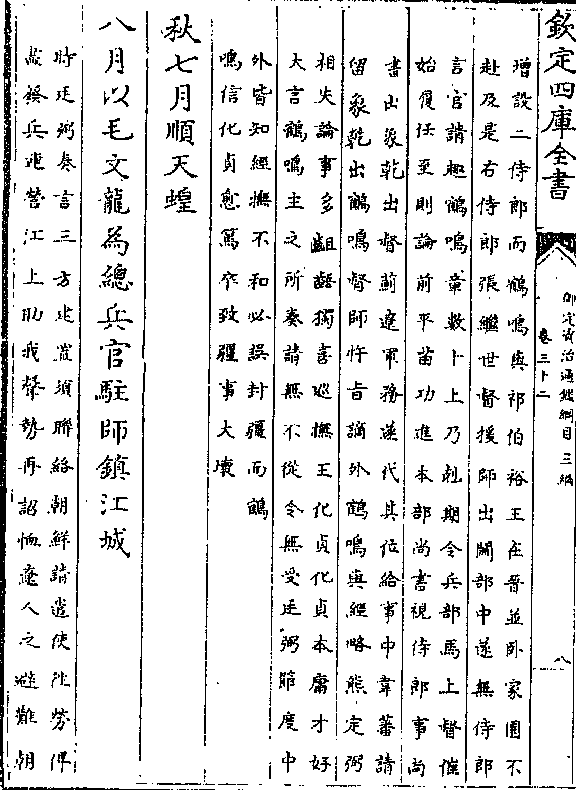 欽定四庫全書
御定資治通鑑綱目三編
卷三十二
八
增設二侍郎而鶴鳴與祁伯裕王在晉並卧家園不
赴及是右侍郎張經世督援師出關部中遂無侍郎
言官請趣鶴鳴章數十上乃剋期令兵部馬上督催
始履任至則論前平苗功進本部尚書視侍郎事尚
書崔景榮出督薊遼軍務遂代其位給事中韋蕃請
留象乾出鶴鳴督師忤旨謫外鶴鳴與經略熊廷弼
相失論事多齟齬獨喜巡撫王化貞化貞本庸才好
大言鶴鳴主之所奏請無不從令無受廷弼節度中
外皆知經撫不和必誤封疆而鶴
鳴信化貞愈篤卒致疆事大壞
秋七月順天蝗
八月以毛文龍為總兵官駐師鎮江城
時廷弼奏言三方建置須聯絡朝鮮請遣使往勞俾
盡發兵連營江上助我聲勢再詔恤遼人之避難朝